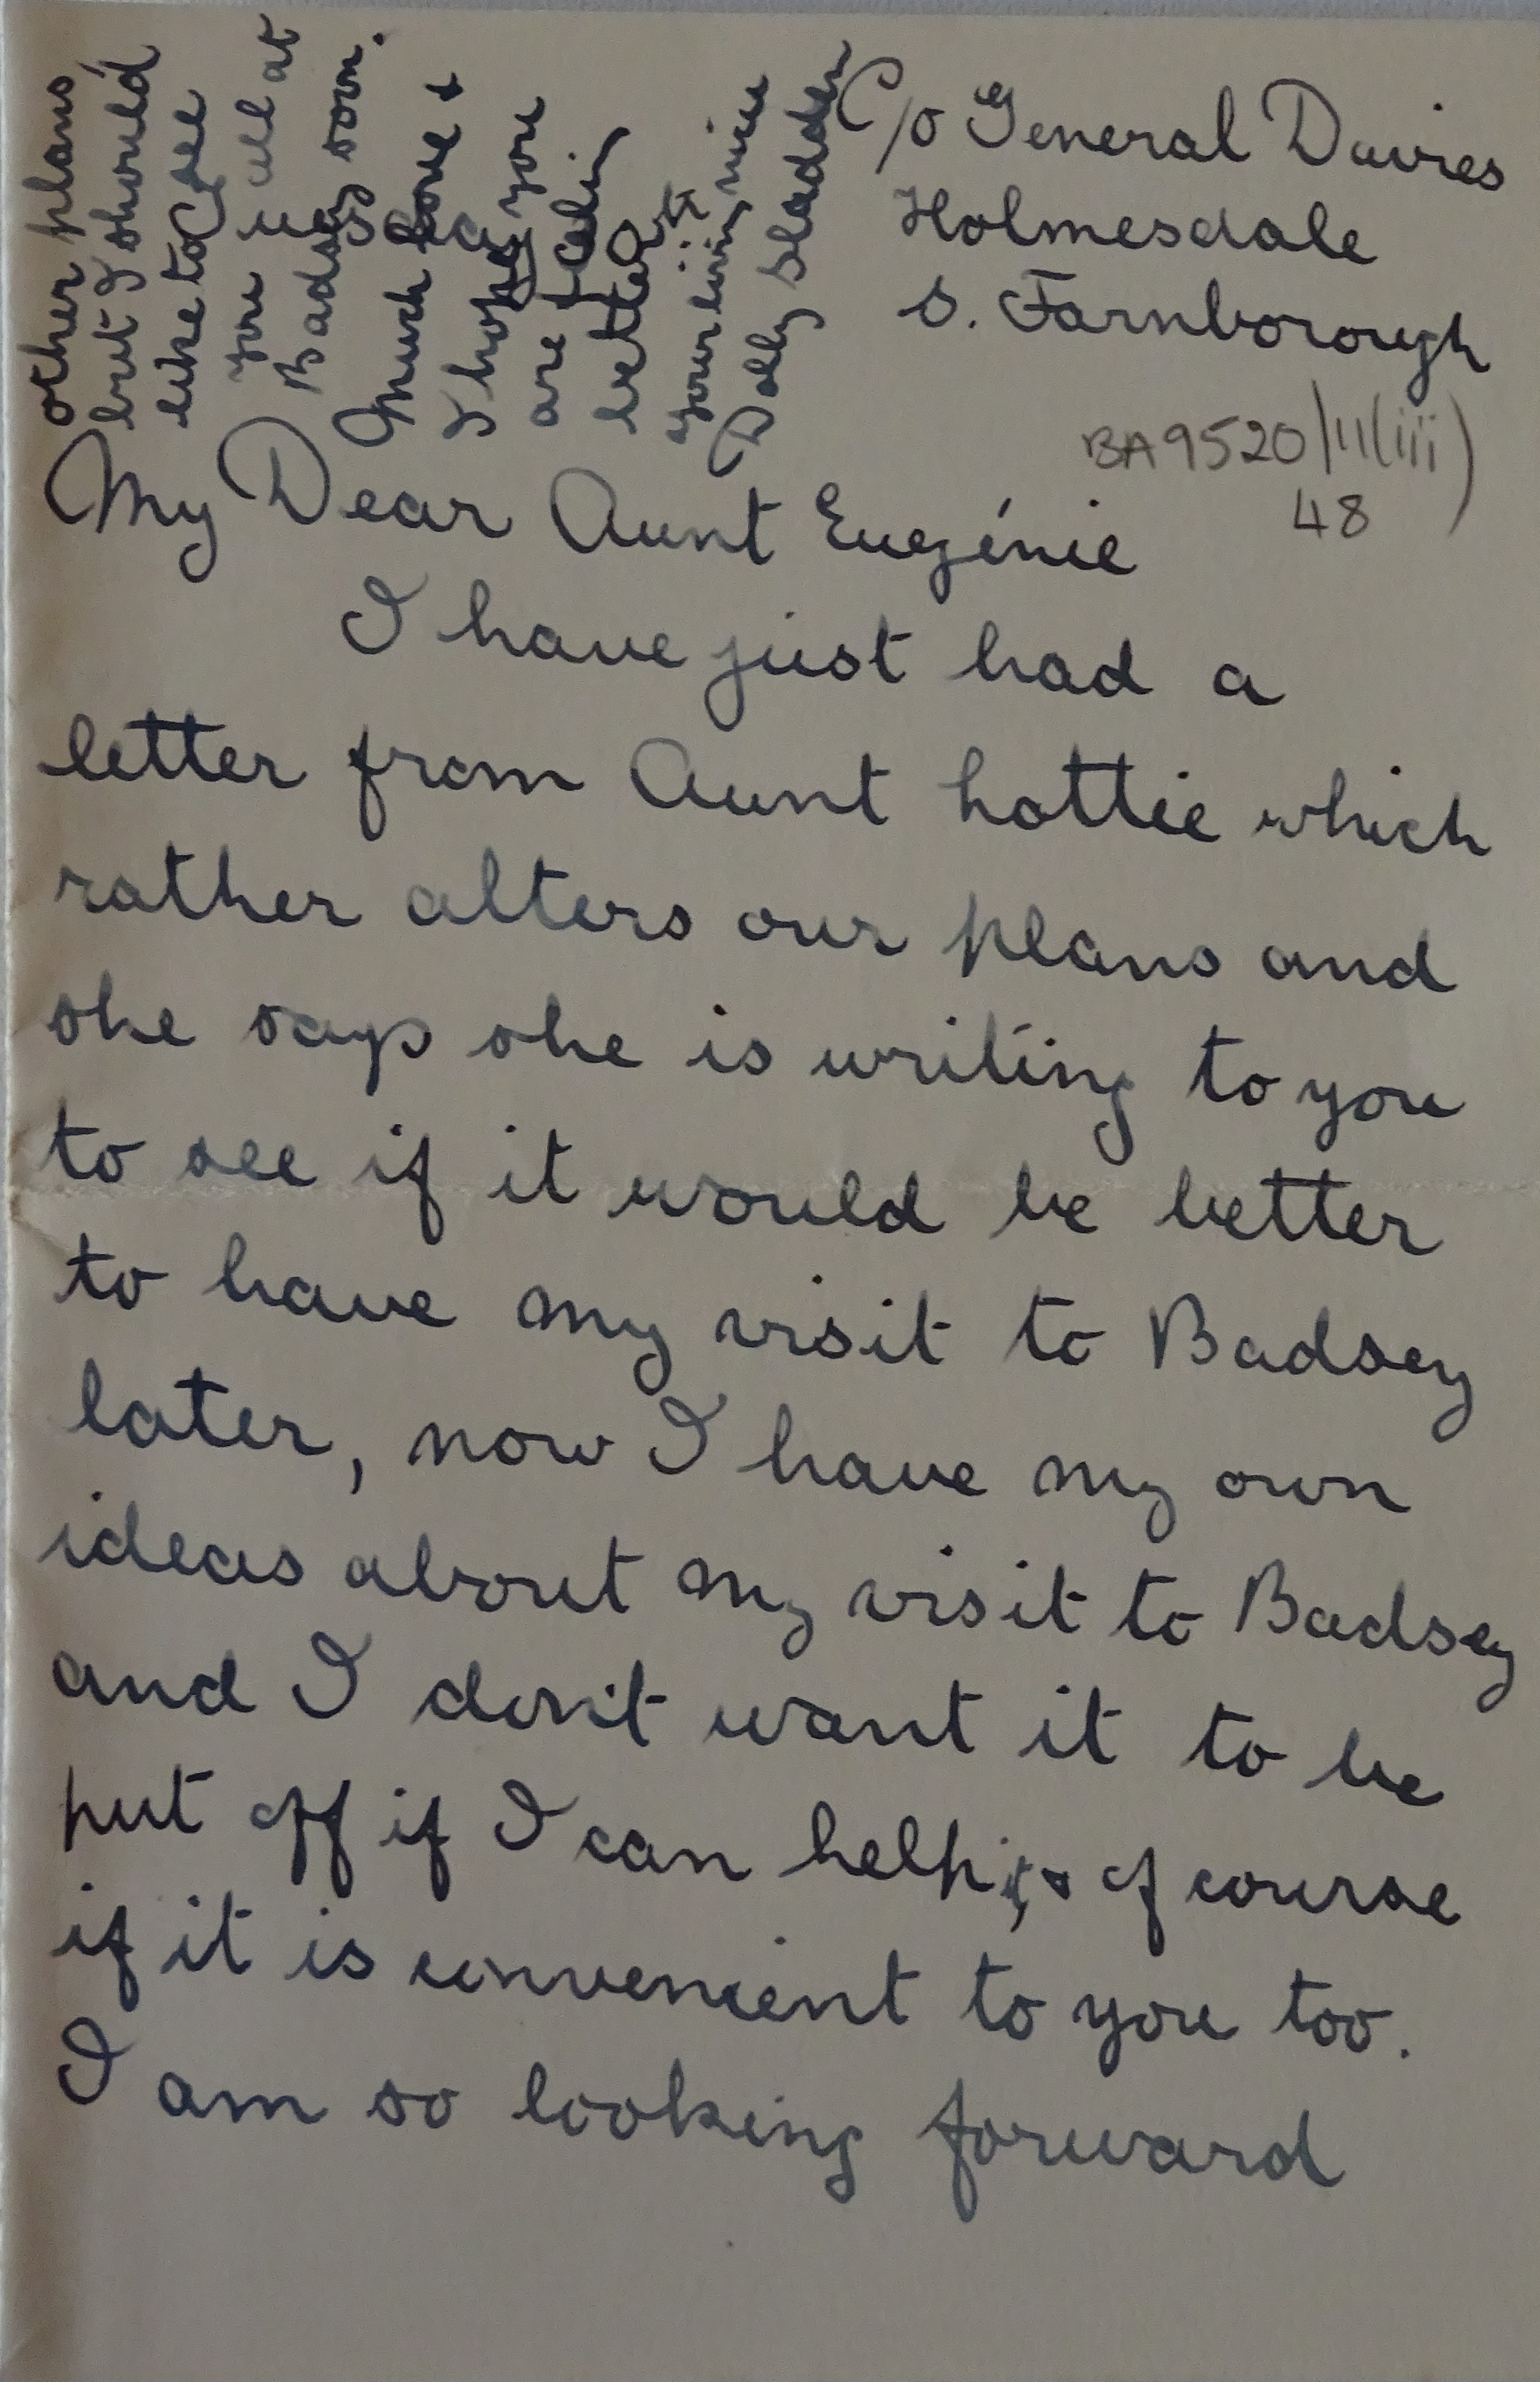 C/o General Davies
Holmesdale
S. Farnborough
BA9520/11(iii)
48
My Dear Aunt Eugénie
I have just had a
letter from Aunt Lottie which
rather alters our plans and
she says she is writing to you
to see if it would be better
to have my visit to Badsey
later, now I have my own
ideas about my visit to Badsey
and I don't want it to be
put off if I can help it, & of course
if it is convenient to you too.
I am so looking forward
other plans,
but I should
like to see
you all at
Badsey soon.
Much love &
I hope you
are feeling
better
your loving niece
Dolly Sladden